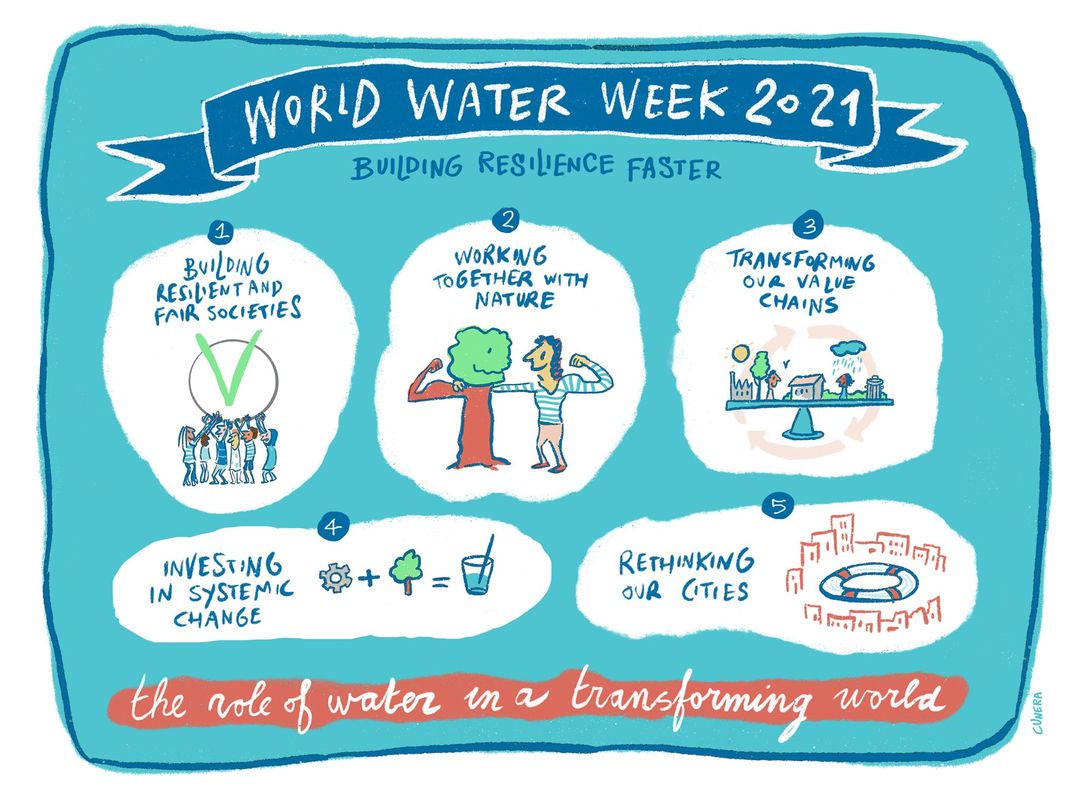 WORLD WATER WEEK 2021
BUILDING RESILIENCE FASTER
1
BUILDING
RESILIENT AND
FAIR SOCIETIES
2
WORKING
TOGETHER WITH
NATURE
3
TRANSFORMING
OUR VALUE
CHAINS
4
INVESTING
IN SYSTEMIC
CHANGE
+
=
5
RETHINKING
OUR CITIES
the role of water in a transforming world
CUNERA